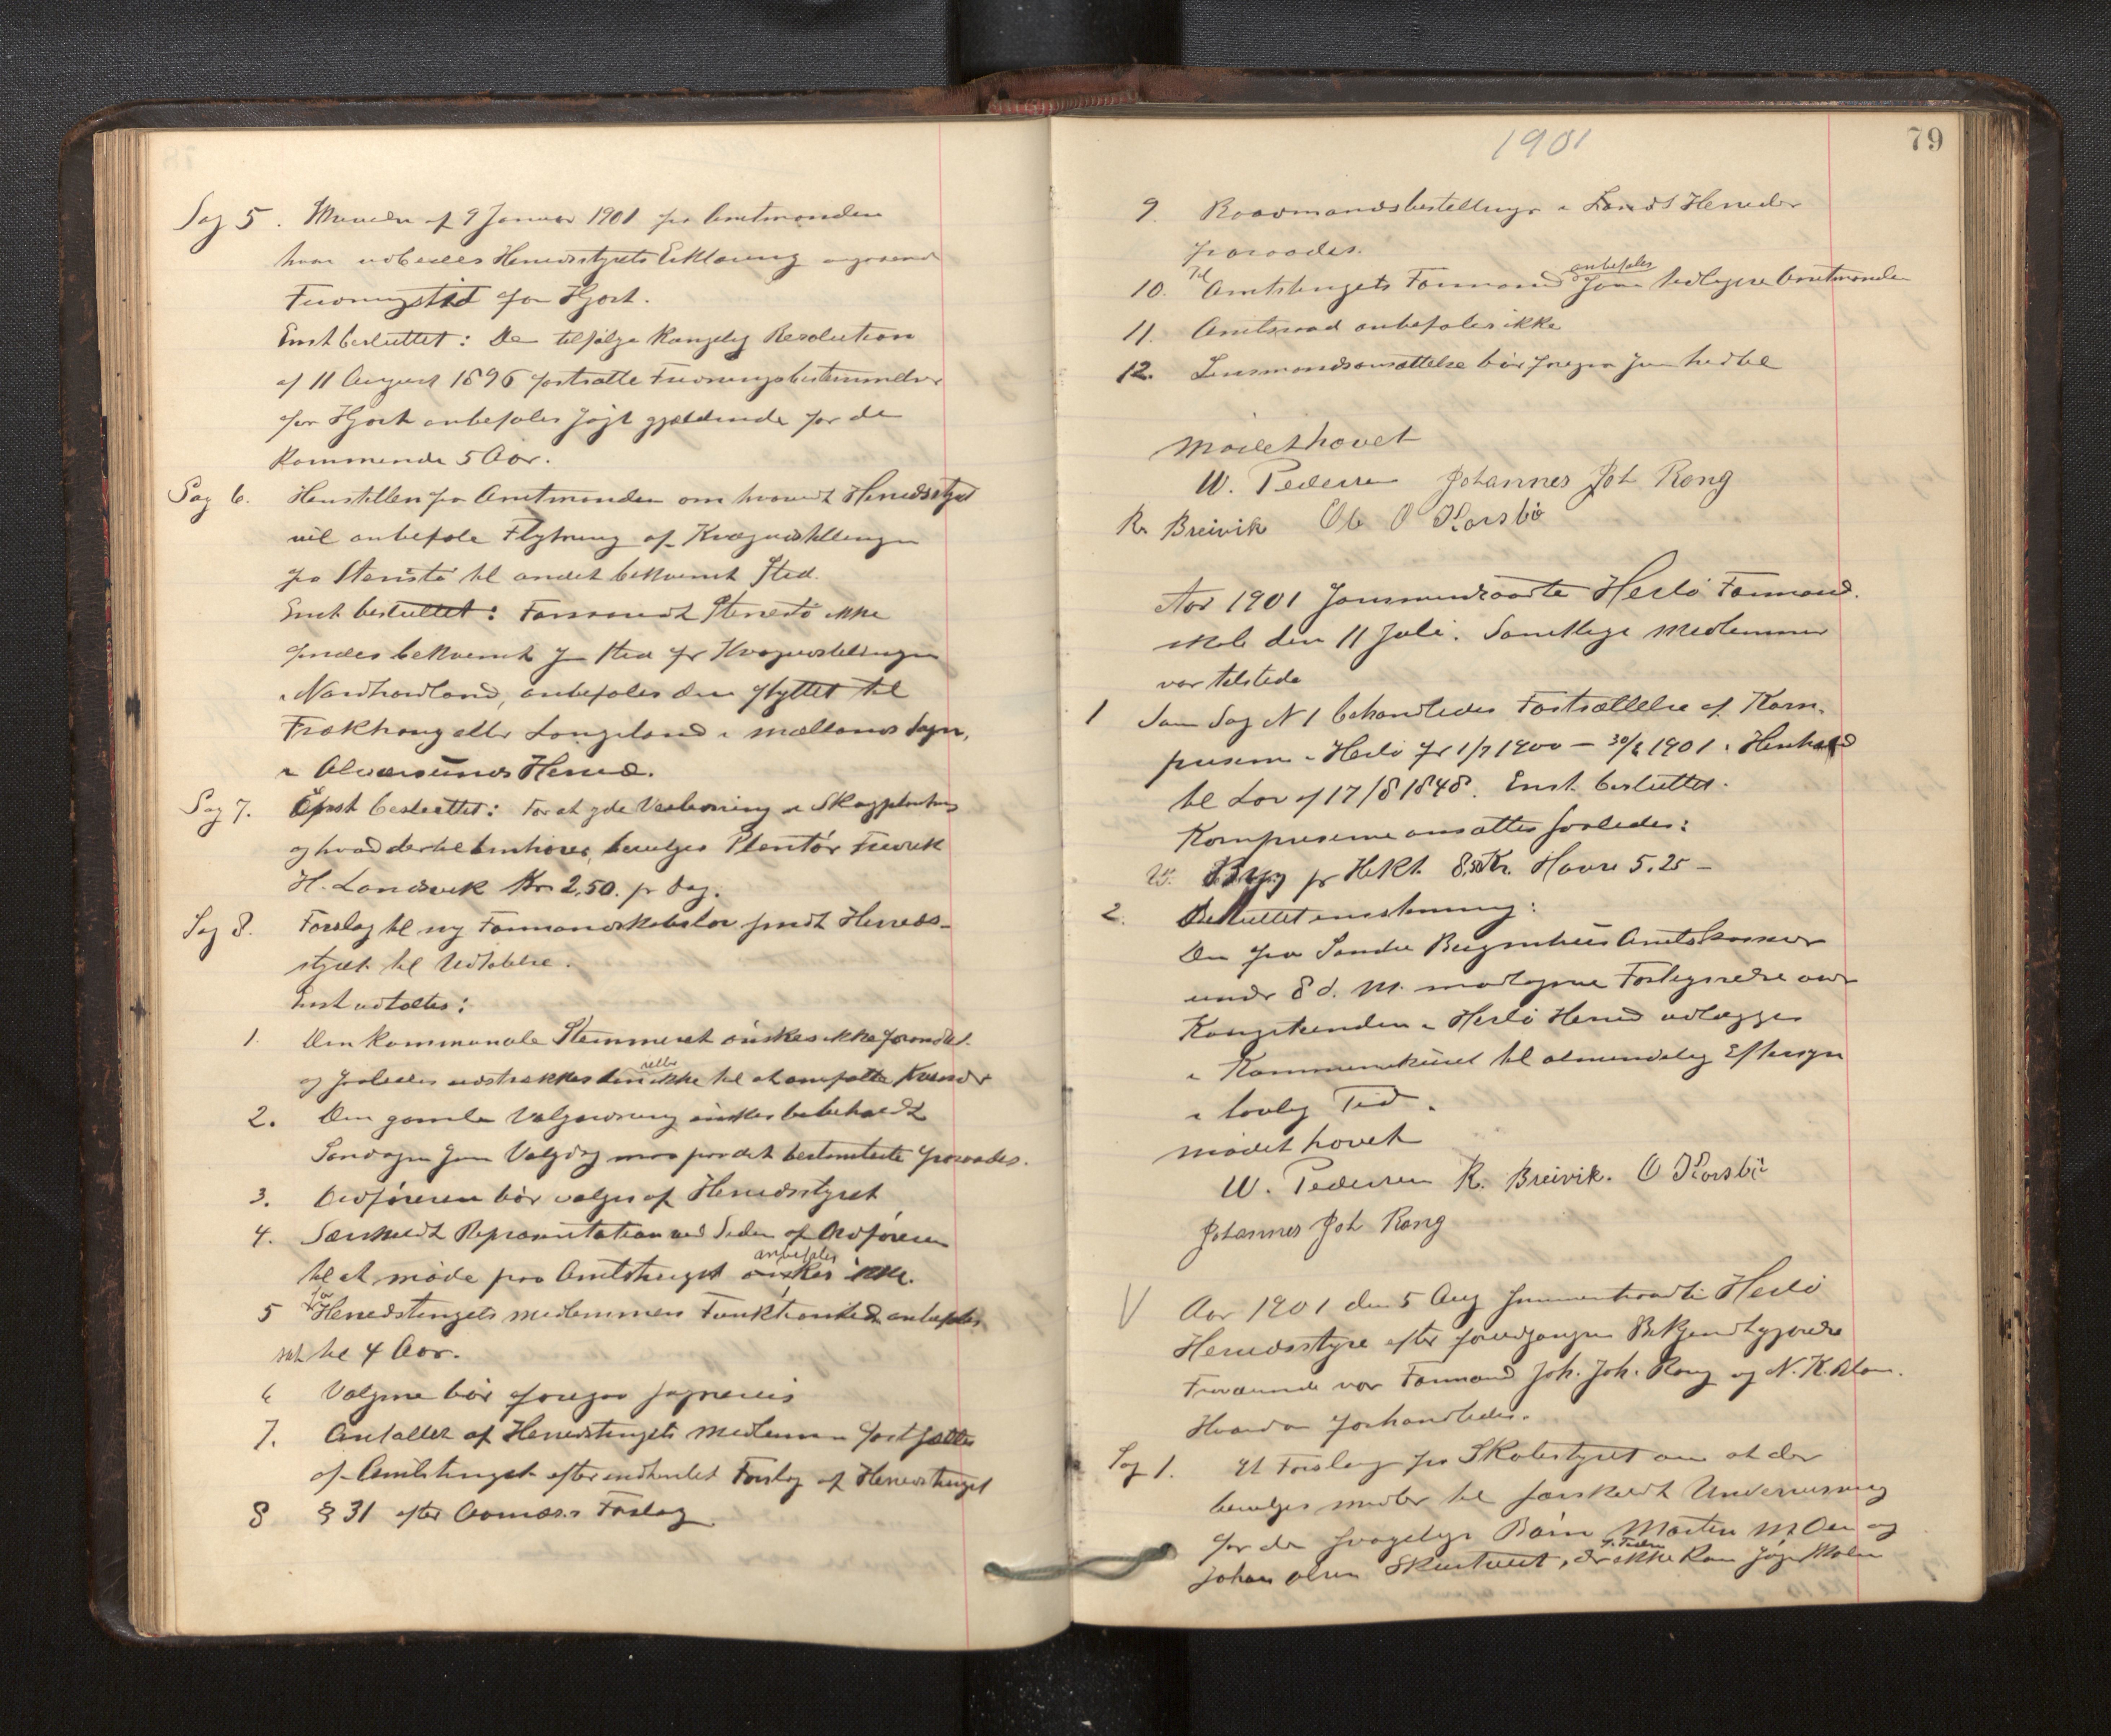 Sag 5. Skrivelse af 9 Januar 1901 fra Amtmanden
hvori udbedes Herredsstyrets Erklæring angaaende
Fredningstid for Hjort.
Enst besluttet: De tilfølge Kongelig Resolution
af 11 August 1896 fortsatte Fredningsbestemmelser
for Hjort anbefales søgt gjældende for de
kommende 5 Aar.
Sag 6. Henstillen fra Amtmanden om hvorvidt Herredsstyret
vil anbefale Flytning af Kvægudstillingen
fra Stenstø til andet bekvemt Sted.
Enst besluttet: Forsaavidt Stenestø ikke
findes bekvemt som Sted for Kvægudstillingen
i Nordhordland, anbefales den flyttet til
Frækhaug eller Langeland i Mællands Sogn,
i Alversunds Herred.
Sag 7. Enst besluttet: For at yde Veiledning i Skogplantning
og hvad dertil henhører, bevilges Plantør Fredrik
H. Landsvik Kr 2,50. pr Dag.
Sag 8. Forslag til ny Formandskabslov sendt Herreds-
styret til Udtalelse.
Enst udtaltes:
1. Den kommunale Stemmeret ønskes ikke forandret.
og saaledes udstrækkes den heller ikke til at omfatte Kvinder
2. Den gamle Valgordning ønskes bibeholdt
Søndagen som Valgdag maa paa det bestemteste fraraades.
3. Ordføreren bør vælges af Herredsstyret
4. Særskilt Repræsentation ved Siden af Ordføreren
anbefales
til at møde paa Amtstinget ønskes ikke.
5 for Herredstingets medlemmers Funktionstid anbefales
sat til 4 Aar.
6 Valgene bør foregaa sognevis
7. Antallet af Herredstingets Medlemmer fastsættes
af Amtstinget efter indhentet Forslag af Herredstinget
8 § 31 efter Forslag
1901
79
9. Raadmandsbestillinger i Lands Herreder
fraraades.
10. Til Amtstingets Formand anbefales som tidligere Amtmanden
11. Amtsraad anbefales ikke
12. Lensmandsansættelse bør foregaa som hidtil
Mødet hævet
W. Pedersen Johannes Joh Rong
R. Breivik O Korsbø
Aar 1901 sammentraadte Herlø Formand-
skab den 11 Juli. Samtlige Medlemmer
var tilstede
1 Som Sag N 1 behandledes Fastsættelse af Korn-
prisen i Herlø for 1/7 1900 – 30/6 1901 i Henhold
til Lov af 17/8 1848. Enst. besluttet.
Kornpriserne ansættes saaledes:
Byg pr Hekt. 8.50 Kr. Havre 5.25 –
2. Besluttet enstemmig:
Den fra Søndre Bergenhus Amtskasserer
under 8 d. M. modtagne Fortegnelse over
Kongetienden i Herlø Herred udlægges
i Kommunehuset til almindelig Eftersyn
i lovlig Tid.
Mødet hævet
W. Pedersen R. Breivik. O Korsbø
Johannes Joh Rong
V Aar 1901 den 5 Aug sammentraadte Herlø
Herredsstyre efter foregaaende Bekjendtgjørelse
Fraværende var Formand Joh. Joh. Rong og N. K.
Hvorda forhandledes.
Sag 1. Et Forslag fra Skolestyret om at der
bevilges midler til særskildt Undervisning
for de svagelige Børn Martin M. Oen og
Johan Olsen, der ikke kan søge Skolen